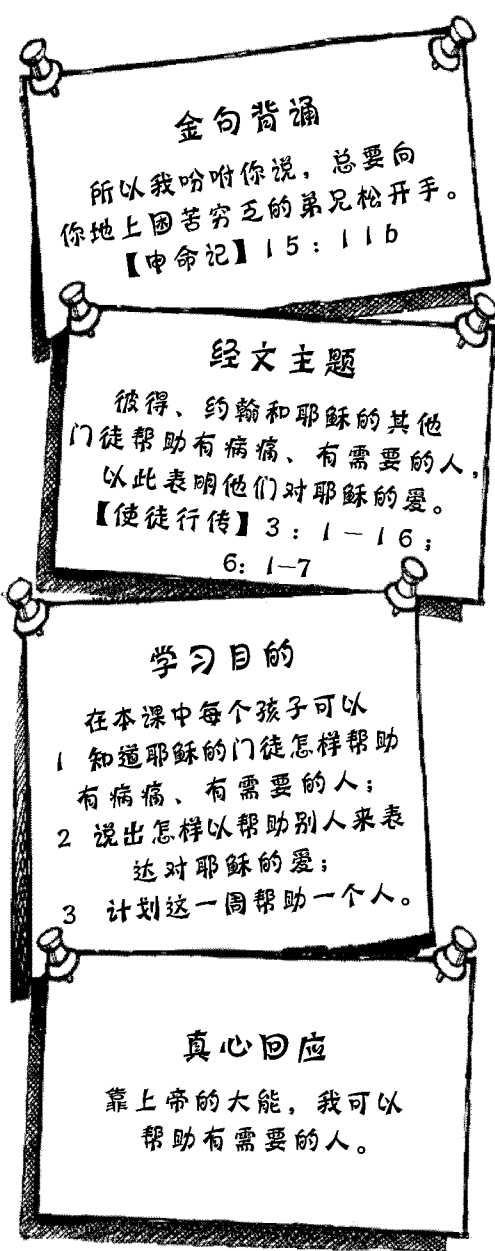 金句背诵
所以我吩咐你说，总要向
你地上困苦穷乏的弟兄松开手。
【申命记】15：11b
经文主题
彼得、约翰和耶稣的其他
门徒帮助有病痛、有需要的人，
以此表明他们对耶稣的爱。
【使徒行传】3：1－16；
6：1－7
学习目的
在本课中每个孩子可以
1 知道耶稣的门徒怎样帮助
有病痛、有需要的人；
2 说出怎样以帮助别人来表
达对耶稣的爱；
3 计划这一周帮助一个人。
真心回应
靠上帝的大能，我可以
帮助有需要的人。